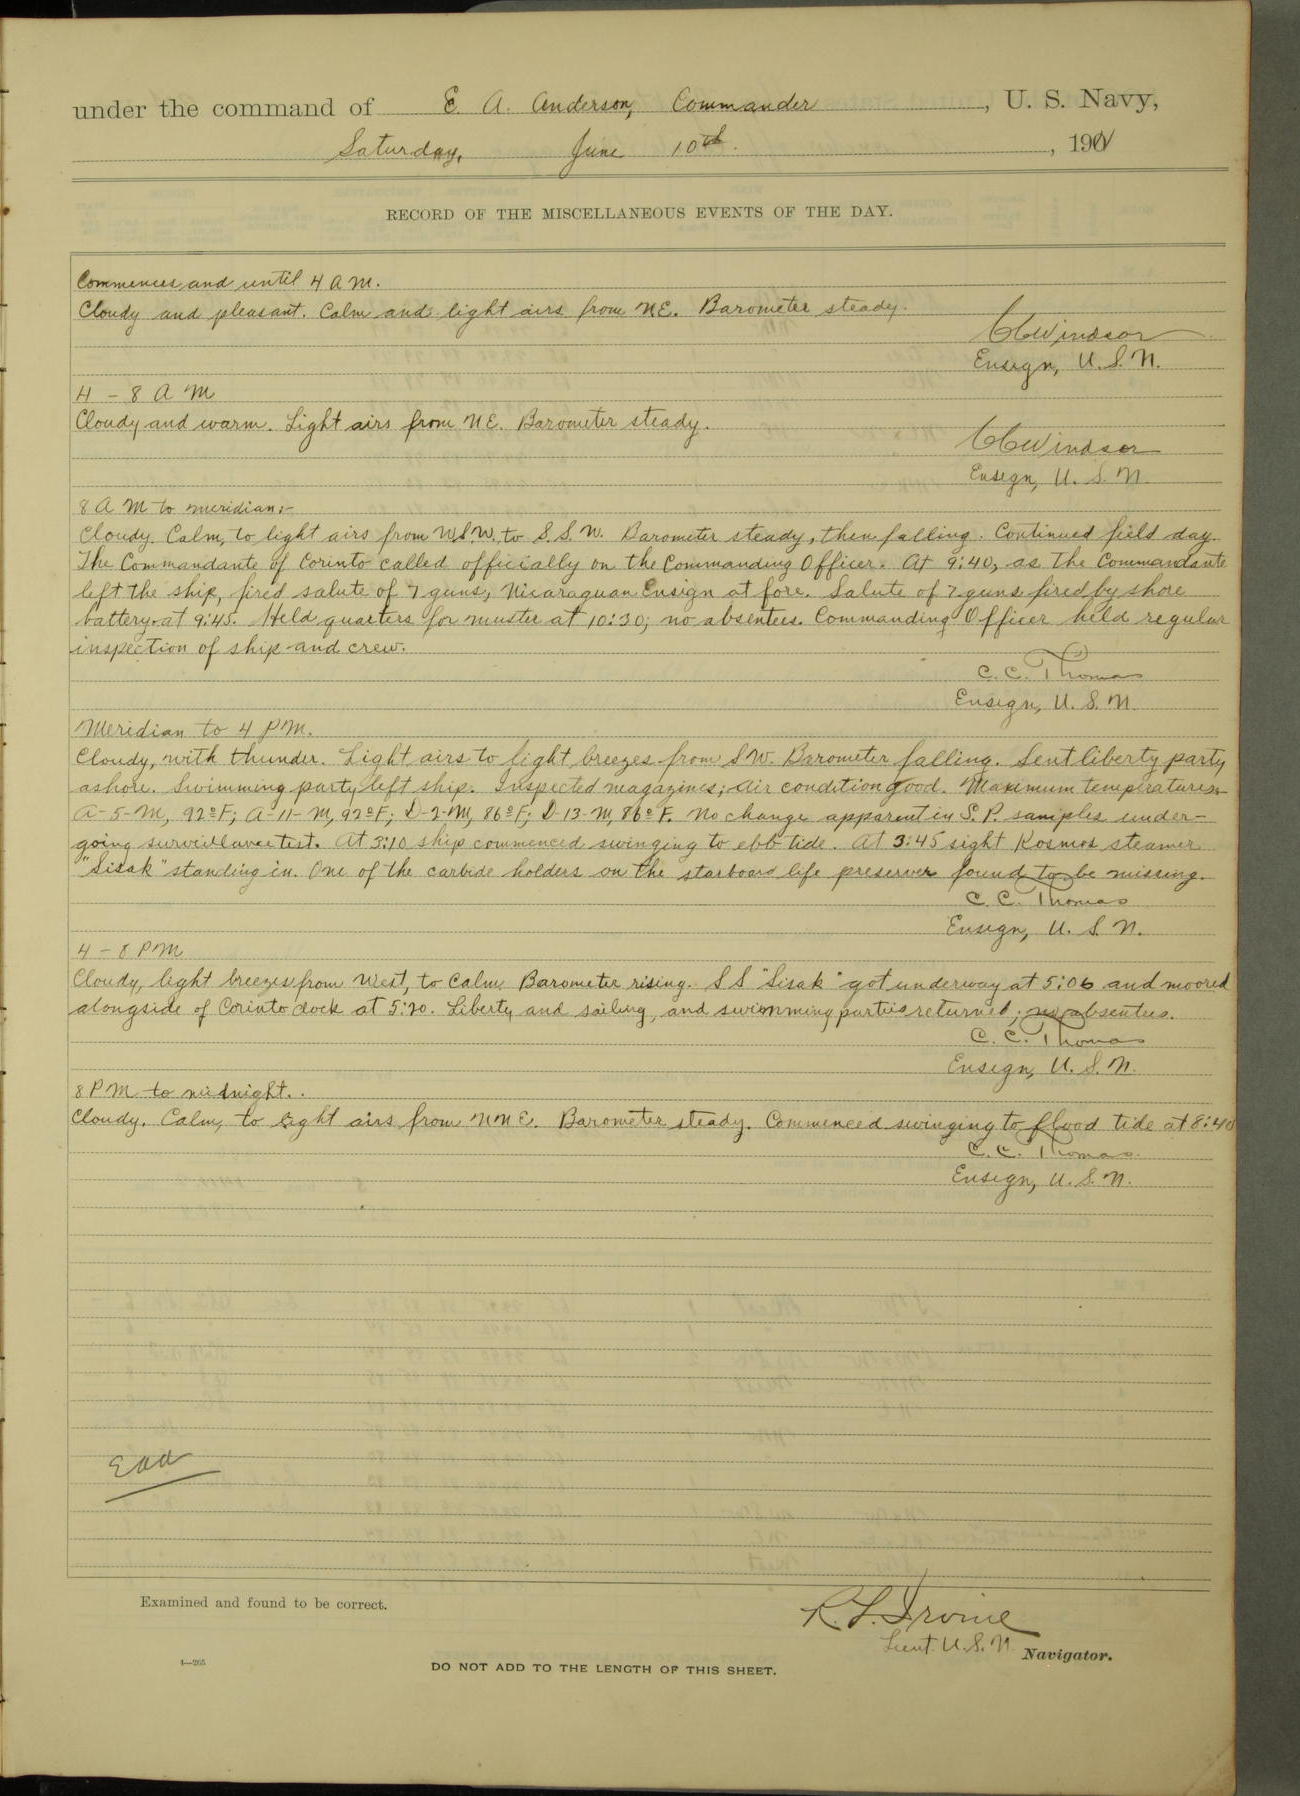 under the command of E. A. Anderson, Commander, U. S. Navy,
Saturday, June 10th, 1911
RECORD OF THE MISCELLANEOUS EVENTS OF THE DAY.
Commences and until 4 A M.
Cloudy and pleasant. Calm and light airs from NE. Barometer steady.
CCWindsor
Ensign, U.S.N.
4 - 8 A M
Cloudy and warm. Light airs from NE. Barometer steady.
CCWindsor
Ensign, U.S.N.
8 A M to meridian:-
Cloudy. Calm, to light airs from W.S.W. to S.S.W. Barometer steady, then falling. Continued field day.
The Commandante of Corinto called officially on the Commanding Officer. At 9:40, as The Commandante
left the ship, fired salute of 7 guns, Nicaraguan Ensign at fore. Salute of 7 guns fired by shore
battery at 9:45. Held quarters for muster at 10:30; no absentees. Commanding Officer held regular
inspection of ship and crew.
C. C. Thomas
Ensign, U.S.N.
Meridian to 4 P.M.
Cloudy, with thunder. Light airs to light breezes from SW. Barometer falling. Sent liberty party
ashore. Swimming party left ship. Inspected magazines; air condition good. Maximum temperatures
A-5-M, 92°F; A-11-M, 92°F; D-2-M, 86°F; D-13-M, 86°F. No change apparent in S.P. samples under-
going surveillance test. At 3:10 ship commenced swinging to ebb tide. At 3:45 sight Kosmos steamer
"Sisak" standing in. One of the carbide holders on the starboard life preserver found to be missing.
C. C. Thomas
Ensign, U.S.N.
4 - 8 PM
Cloudy, light breezes from West, to Calm. Barometer rising. SS "Sisak" got underway at 5:06 and moored
alongside of Corinto dock at 5:20. Liberty and sailing, and swimming parties returned; no absentees.
C. C. Thomas
Ensign, U.S.N.
8 PM to midnight.
Cloudy. Calm, to light airs from NNE. Barometer steady. Commenced swinging to flood tide at 8:40
C. C. Thomas.
Ensign, U.S.N.
EAA
Examined and found to be correct.
R. F. Irvine
Lieut. U.S.N. Navigator.
4—265
DO NOT ADD TO THE LENGTH OF THIS SHEET.